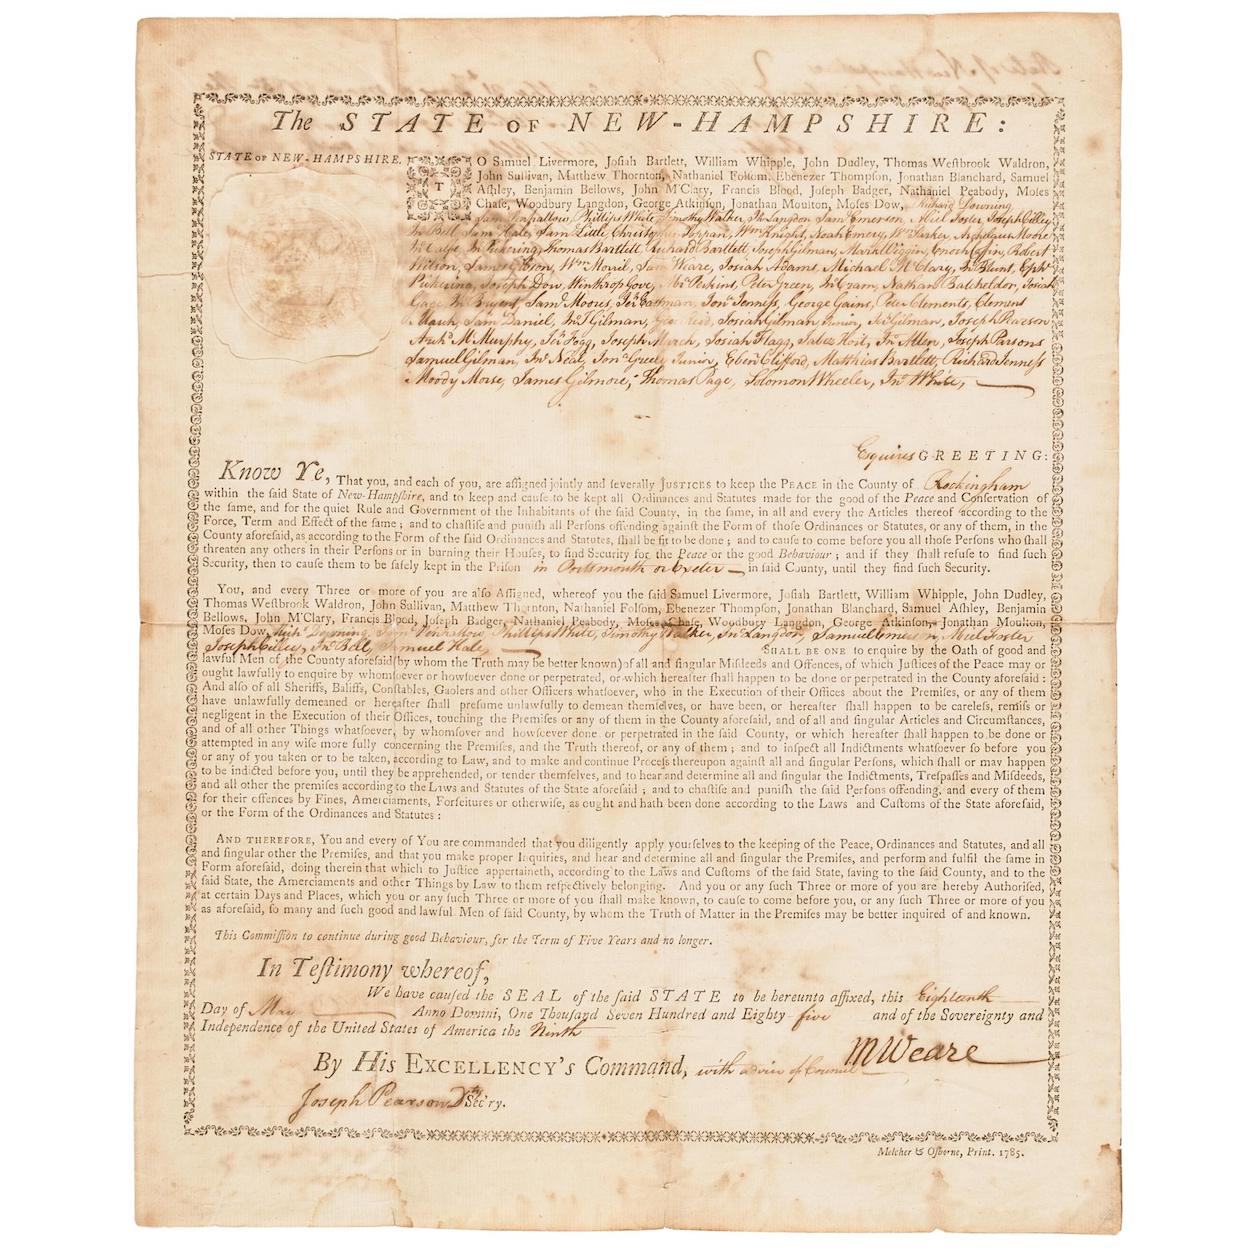 The STATE OF NEW-HAMPSHIRE:
STATE OF NEW-HAMPSHIRE.
TO Samuel Livermore, Joſiah Bartlett, William Whipple, John Dudley, Thomas Weſtbrook Waldron,
John Sullivan, Matthew Thornton, Nathaniel Folſom, Ebenezer Thompſon, Jonathan Blanchard, Samuel
Aſhley, Benjamin Bellows, John M'Clary, Francis Blood, Joſeph Badger, Nathaniel Peabody, Moſes
Chaſe, Woodbury Langdon, George Atkinſon, Jonathan Moulton, Moſes Dow, Richard Downing
Sam Penhallow, Phillips White, Timothy Walker, Jno Langdon, Sam Emerson, Abiel Foster, Joseph Cilley
Jno Bell, Sam Hale, Sam Little, Christopher Toppan, Wm Knight, Noah Emery, Wm Parker, Archelaus Moore
Jno Pickering, Thomas Bartlett, Richard Bartlett, Joseph Gilman, Mark Wiggin, Enoch Coffin, Robert
Wilson, James Gibson, Wm Morril, Sam Weare, Josiah Adams, Michael McClary, Jno Blunt, Ephm
Pickering, Joseph Dow, Winthrop Gove, Perkins, Peter Green, Jno Cram, Nathan Batchelder, Josiah
Gage, Jno Bryent, Saml Moores, Jer Eastman, Jona Jenness, George Gains, Peter Clements, Clemens
March, Sam Daniel, Jno T Gilman, Geo Reid, Josiah Gilman Junior, Gilman, Joseph Pearson
Archd McMurphy, Jer Fogg, Joseph March, Josiah Flagg, Jabez Hoit, Jno Allen, Joseph Parsons
Samuel Gilman, Jno Neal, Jona Greely Junior, Ebenr Clifford, Matthias Bartlett, Richard Jenness
Moody Morse, James Gilmore, Thomas Page, Solomon Wheeler, Jno White,
Esquires GREETING:
Know Ye, That you, and each of you, are aſſigned jointly and ſeverally JUSTICES to keep the PEACE in the County of Rockingham
within the ſaid State of New-Hampſhire, and to keep and cauſe to be kept all Ordinances and Statutes made for the good of the Peace and Conſervation of
the ſame, and for the quiet Rule and Government of the Inhabitants of the ſaid County, in the ſame, in all and every the Articles thereof according to the
Force, Term and Effect of the ſame; and to chaſtiſe and puniſh all Perſons offending againſt the Form of thoſe Ordinances or Statutes, or any of them, in the
County aforeſaid, as according to the Form of the ſaid Ordinances and Statutes, ſhall be fit to be done; and to cauſe to come before you all thoſe Perſons who ſhall
threaten any others in their Perſons or in burning their Houſes, to find Security for the Peace or the good Behaviour; and if they ſhall refuſe to find ſuch
Security, then to cauſe them to be ſafely kept in the Priſon in Portsmouth or Exeter in ſaid County, until they find ſuch Security.
You, and every Three or more of you are alſo Aſſigned, whereof you the ſaid Samuel Livermore, Joſiah Bartlett, William Whipple, John Dudley,
Thomas Weſtbrook Waldron, John Sullivan, Matthew Thornton, Nathaniel Folſom, Ebenezer Thompſon, Jonathan Blanchard, Samuel Aſhley, Benjamin
Bellows, John M'Clary, Francis Blood, Joſeph Badger, Nathaniel Peabody, Moſes Chaſe, Woodbury Langdon, George Atkinſon, Jonathan Moulton,
Moſes Dow, Richd Downing, Sam Penhallow, Phillips White, Timothy Walker, Jno Langdon, Samuel Emerson, Abiel Foster
Joseph Cilley, Jno Bell, Samuel Hale, SHALL BE ONE to enquire by the Oath of good and
lawful Men of the County aforeſaid (by whom the Truth may be better known) of all and ſingular Miſdeeds and Offences, of which Juſtices of the Peace may or
ought lawfully to enquire by whomſoever or howſoever done or perpetrated, or which hereafter ſhall happen to be done or perpetrated in the County aforeſaid:
And alſo of all Sheriffs, Baliffs, Conſtables, Gaolers and other Officers whatſoever, who in the Execution of their Offices about the Premiſes, or any of them
have unlawfully demeaned or hereafter ſhall preſume unlawfully to demean themſelves, or have been, or hereafter ſhall happen to be careleſs, remiſs or
negligent in the Execution of their Offices, touching the Premiſes or any of them in the County aforeſaid, and of all and ſingular Articles and Circumſtances,
and of all other Things whatſoever, by whomſover and howſoever done or perpetrated in the ſaid County, or which hereafter ſhall happen to be done or
attempted in any wiſe more fully concerning the Premiſes, and the Truth thereof, or any of them; and to inſpect all Indictments whatſoever ſo before you
or any of you taken or to be taken, according to Law, and to make and continue Proceſs thereupon againſt all and ſingular Perſons, which ſhall or may happen
to be indicted before you, until they be apprehended, or tender themſelves, and to hear and determine all and ſingular the Indictments, Treſpaſſes and Miſdeeds,
and all other the premiſes according to the Laws and Statutes of the State aforeſaid; and to chaſtiſe and puniſh the ſaid Perſons offending, and every of them
for their offences by Fines, Amerciaments, Forfeitures or otherwiſe, as ought and hath been done according to the Laws and Cuſtoms of the State aforeſaid,
or the Form of the Ordinances and Statutes:
AND THEREFORE, You and every of You are commanded that you diligently apply yourſelves to the keeping of the Peace, Ordinances and Statutes, and all
and ſingular other the Premiſes, and that you make proper Inquiries, and hear and determine all and ſingular the Premiſes, and perform and fulfil the ſame in
Form aforeſaid, doing therein that which to Juſtice appertaineth, according to the Laws and Cuſtoms of the ſaid State, ſaving to the ſaid County, and to the
ſaid State, the Amerciaments and other Things by Law to them reſpectively belonging. And you or any ſuch Three or more of you are hereby Authoriſed,
at certain Days and Places, which you or any ſuch Three or more of you ſhall make known, to cauſe to come before you, or any ſuch Three or more of you
as aforeſaid, ſo many and ſuch good and lawful Men of ſaid County, by whom the Truth of Matter in the Premiſes may be better inquired of and known.
This Commiſſion to continue during good Behaviour, for the Term of Five Years and no longer.
In Teſtimony whereof,
We have cauſed the SEAL of the ſaid STATE to be hereunto affixed, this Eighteenth
Day of May Anno Domini, One Thouſand Seven Hundred and Eighty-five and of the Sovereignty and
Independence of the United States of America the Ninth
MWeare
By His EXCELLENCY's Command, with advice of Council
Joseph Pearson Dy Sec'ry.
Melcher & Oſborne, Print. 1785.